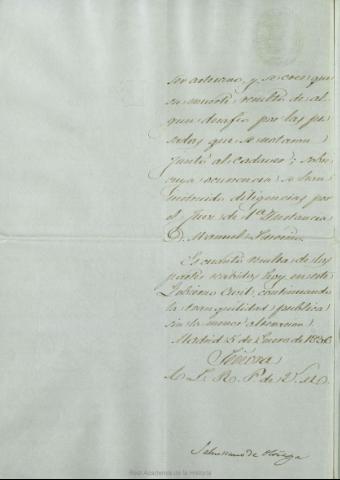 ser asesino, y se cree que
su muerte resultó de al
gun desafio por las pis
tolas que se notaron
junto al cadaver; sobre
cuya ocurrencia se han
instruido diligencias por
el Juez de 1ª Instancia
D. Manuel
Es cuanto resulta de los
partes recibidos hoy en este
Gobierno Civil; continuando
la tranquilidad publica
sin la menor alteracion.
Madrid 5 de Enero de 1836
Señora
A L. R. P. de V. M.
Salustiano de Olózaga
Real Academia de la Historia